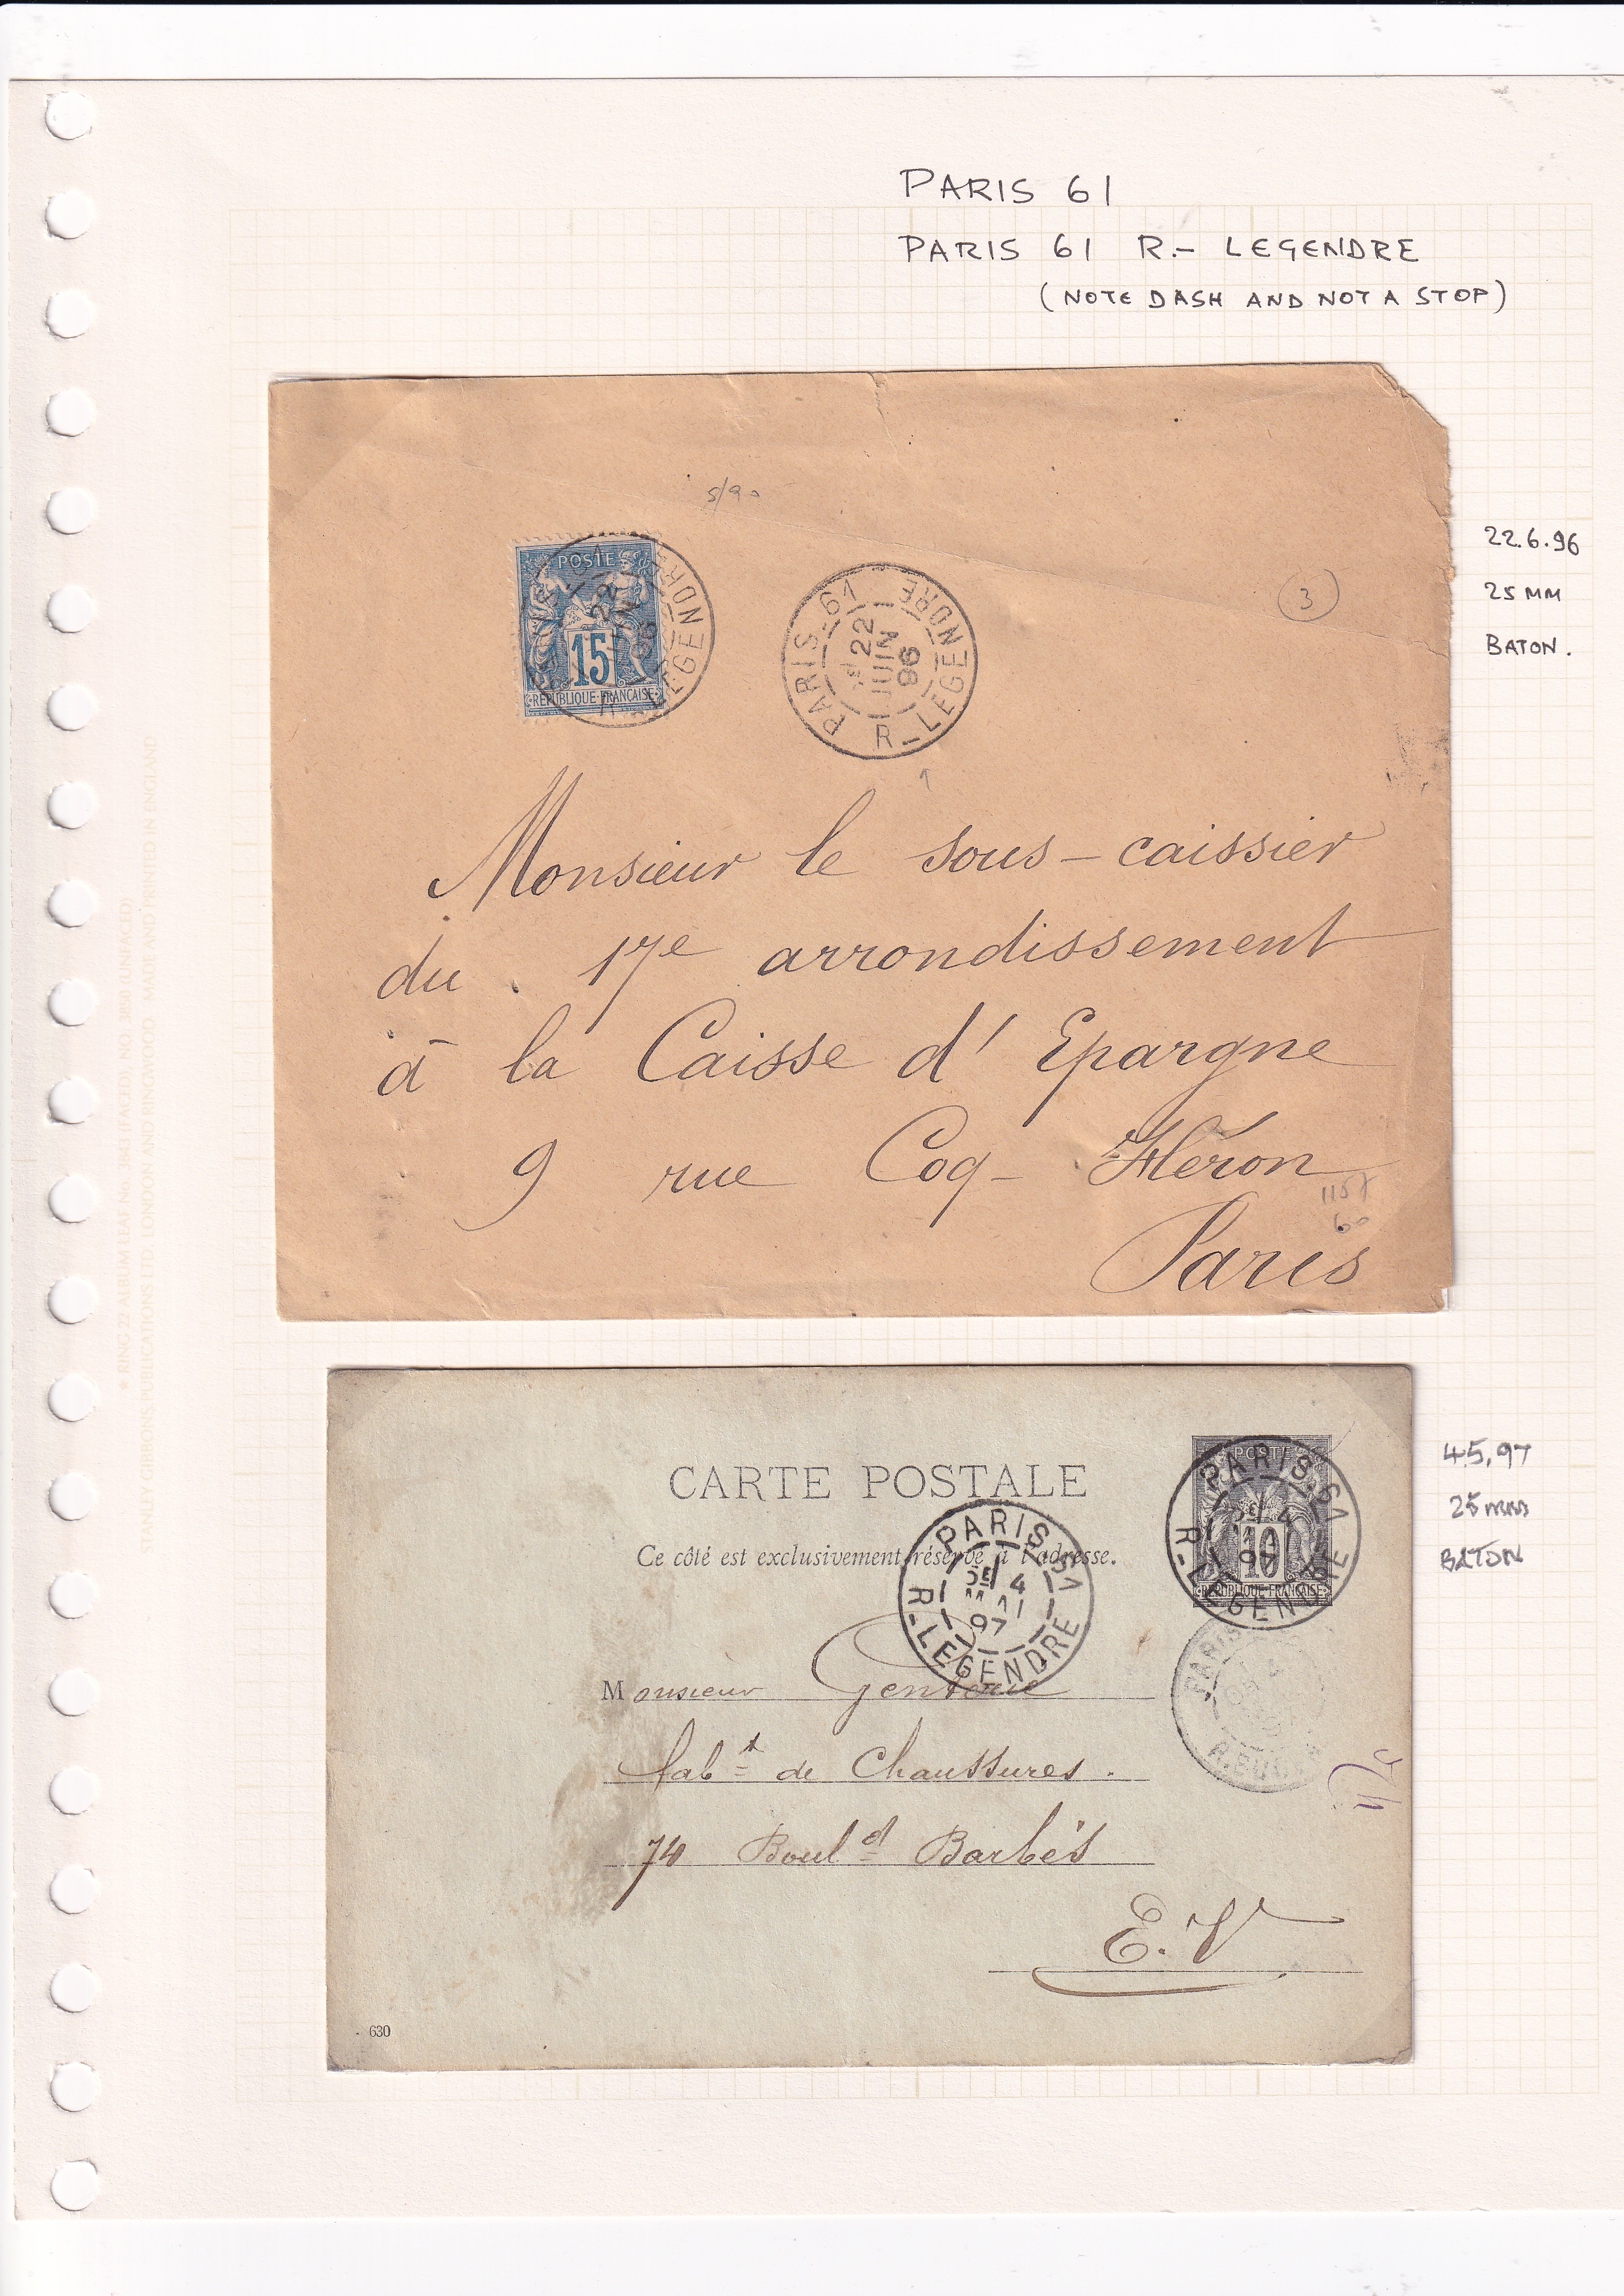 PARIS 61
PARIS 61 R.- LEGENDRE
(NOTE DASH AND NOT A STOP)
5/90
POSTE
22
15
REPUBLIQUE FRANCAISE
R-LEGENDRE
PARIS-61
22
JUIN
96
R-LEGENDRE
3
22.6.96
25 MM
BATON.
Monsieur le sous-caissier
du 17e arrondissement
à la Caisse d'Epargne
9 rue Coq-Héron
1157
60
Paris
CARTE POSTALE
Ce côté est exclusivement réservé à l'adresse.
PARIS-61
5E 4
MAI
97
R-LEGENDRE
POSTE
10
REPUBLIQUE FRANCAISE
PARIS-61
5E 4
97
R-LEGENDRE
PARIS
4.5.97
25 mm
BATON
Monsieur
fabt de Chaussures.
74 Bould Barbès
E.V
630
STANLEY GIBBONS PUBLICATIONS LTD. LONDON AND RINGWOOD. AND PRINTED IN ENGLAND